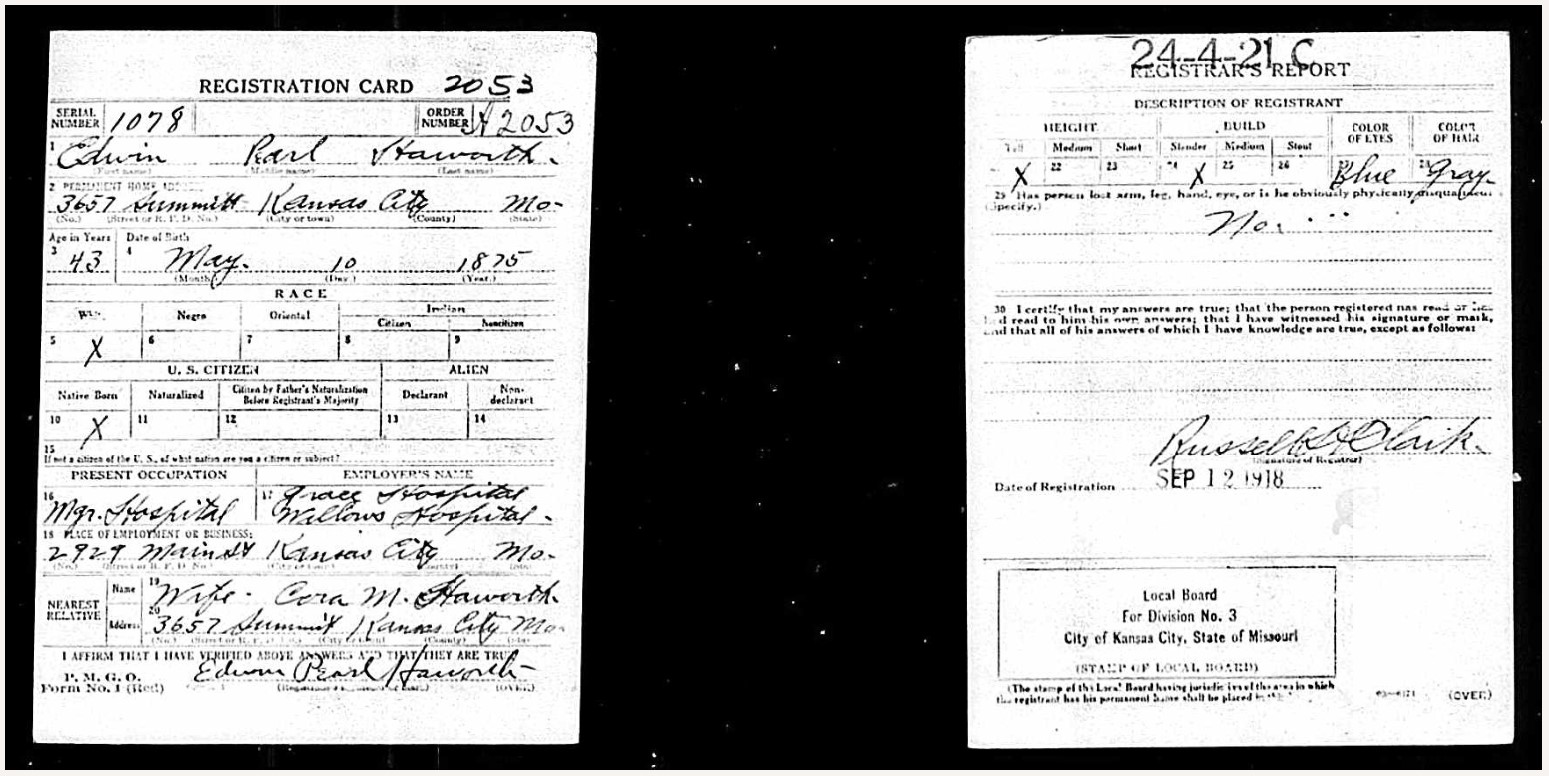 REGISTRATION CARD 2053
SERIAL NUMBER 1078 ORDER NUMBER A 2053
1 Edwin Pearl Haworth.
(First name) (Middle name) (Last name)
2 PERMANENT HOME ADDRESS
3657 Summitt Kansas City Mo-
(No.) (Street or R. F. D. No.) (City or town) (County) (State)
Age in Years Date of Birth
3 43 4 May. 10 1875
(Month) (Day) (Year)
RACE
White Negro Oriental Indian
Citizen Noncitizen
5 X 6 7 8 9
U. S. CITIZEN ALIEN
Native Born Naturalized Citizen by Father's Naturalization Before Registrant's Majority Declarant Non-declarant
10 X 11 12 13 14
15
If not a citizen of the U. S., of what nation are you a citizen or subject?
PRESENT OCCUPATION EMPLOYER'S NAME
16 Mgr. Hospital 17 Grace Hospital
Willows Hospital-
18 PLACE OF EMPLOYMENT OR BUSINESS:
2929 Main St Kansas City Mo-
(No.) (Street or R. F. D. No.) (City or town) (County) (State)
NEAREST RELATIVE Name 19 Wife- Cora M. Haworth.
Address 20 3657 Summit Kansas City Mo-
(No.) (Street or R. F. D. No.) (City or town) (County) (State)
I AFFIRM THAT I HAVE VERIFIED ABOVE ANSWERS AND THAT THEY ARE TRUE
P. M. G. O.
Form No. 1 (Red) Edwin Pearl Haworth
(OVER)
24-4-21 C
REGISTRAR'S REPORT
DESCRIPTION OF REGISTRANT
HEIGHT BUILD COLOR OF EYES COLOR OF HAIR
Tall Medium Short Slender Medium Stout
X 22 23 24 X 25 26 Blue Gray-
29 Has person lost arm, leg, hand, eye, or is he obviously physically disqualified?
(Specify.)
No.
30 I certify that my answers are true; that the person registered has read or has
had read to him his own answers; that I have witnessed his signature or mark,
and that all of his answers of which I have knowledge are true, except as follows:
Russell Clark.
(Signature of Registrar)
Date of Registration SEP 12 1918
Local Board
For Division No. 3
City of Kansas City, State of Missouri
(STAMP OF LOCAL BOARD)
(The stamp of the Local Board having jurisdiction of the area in which
the registrant has his permanent home shall be placed in this
(OVER)